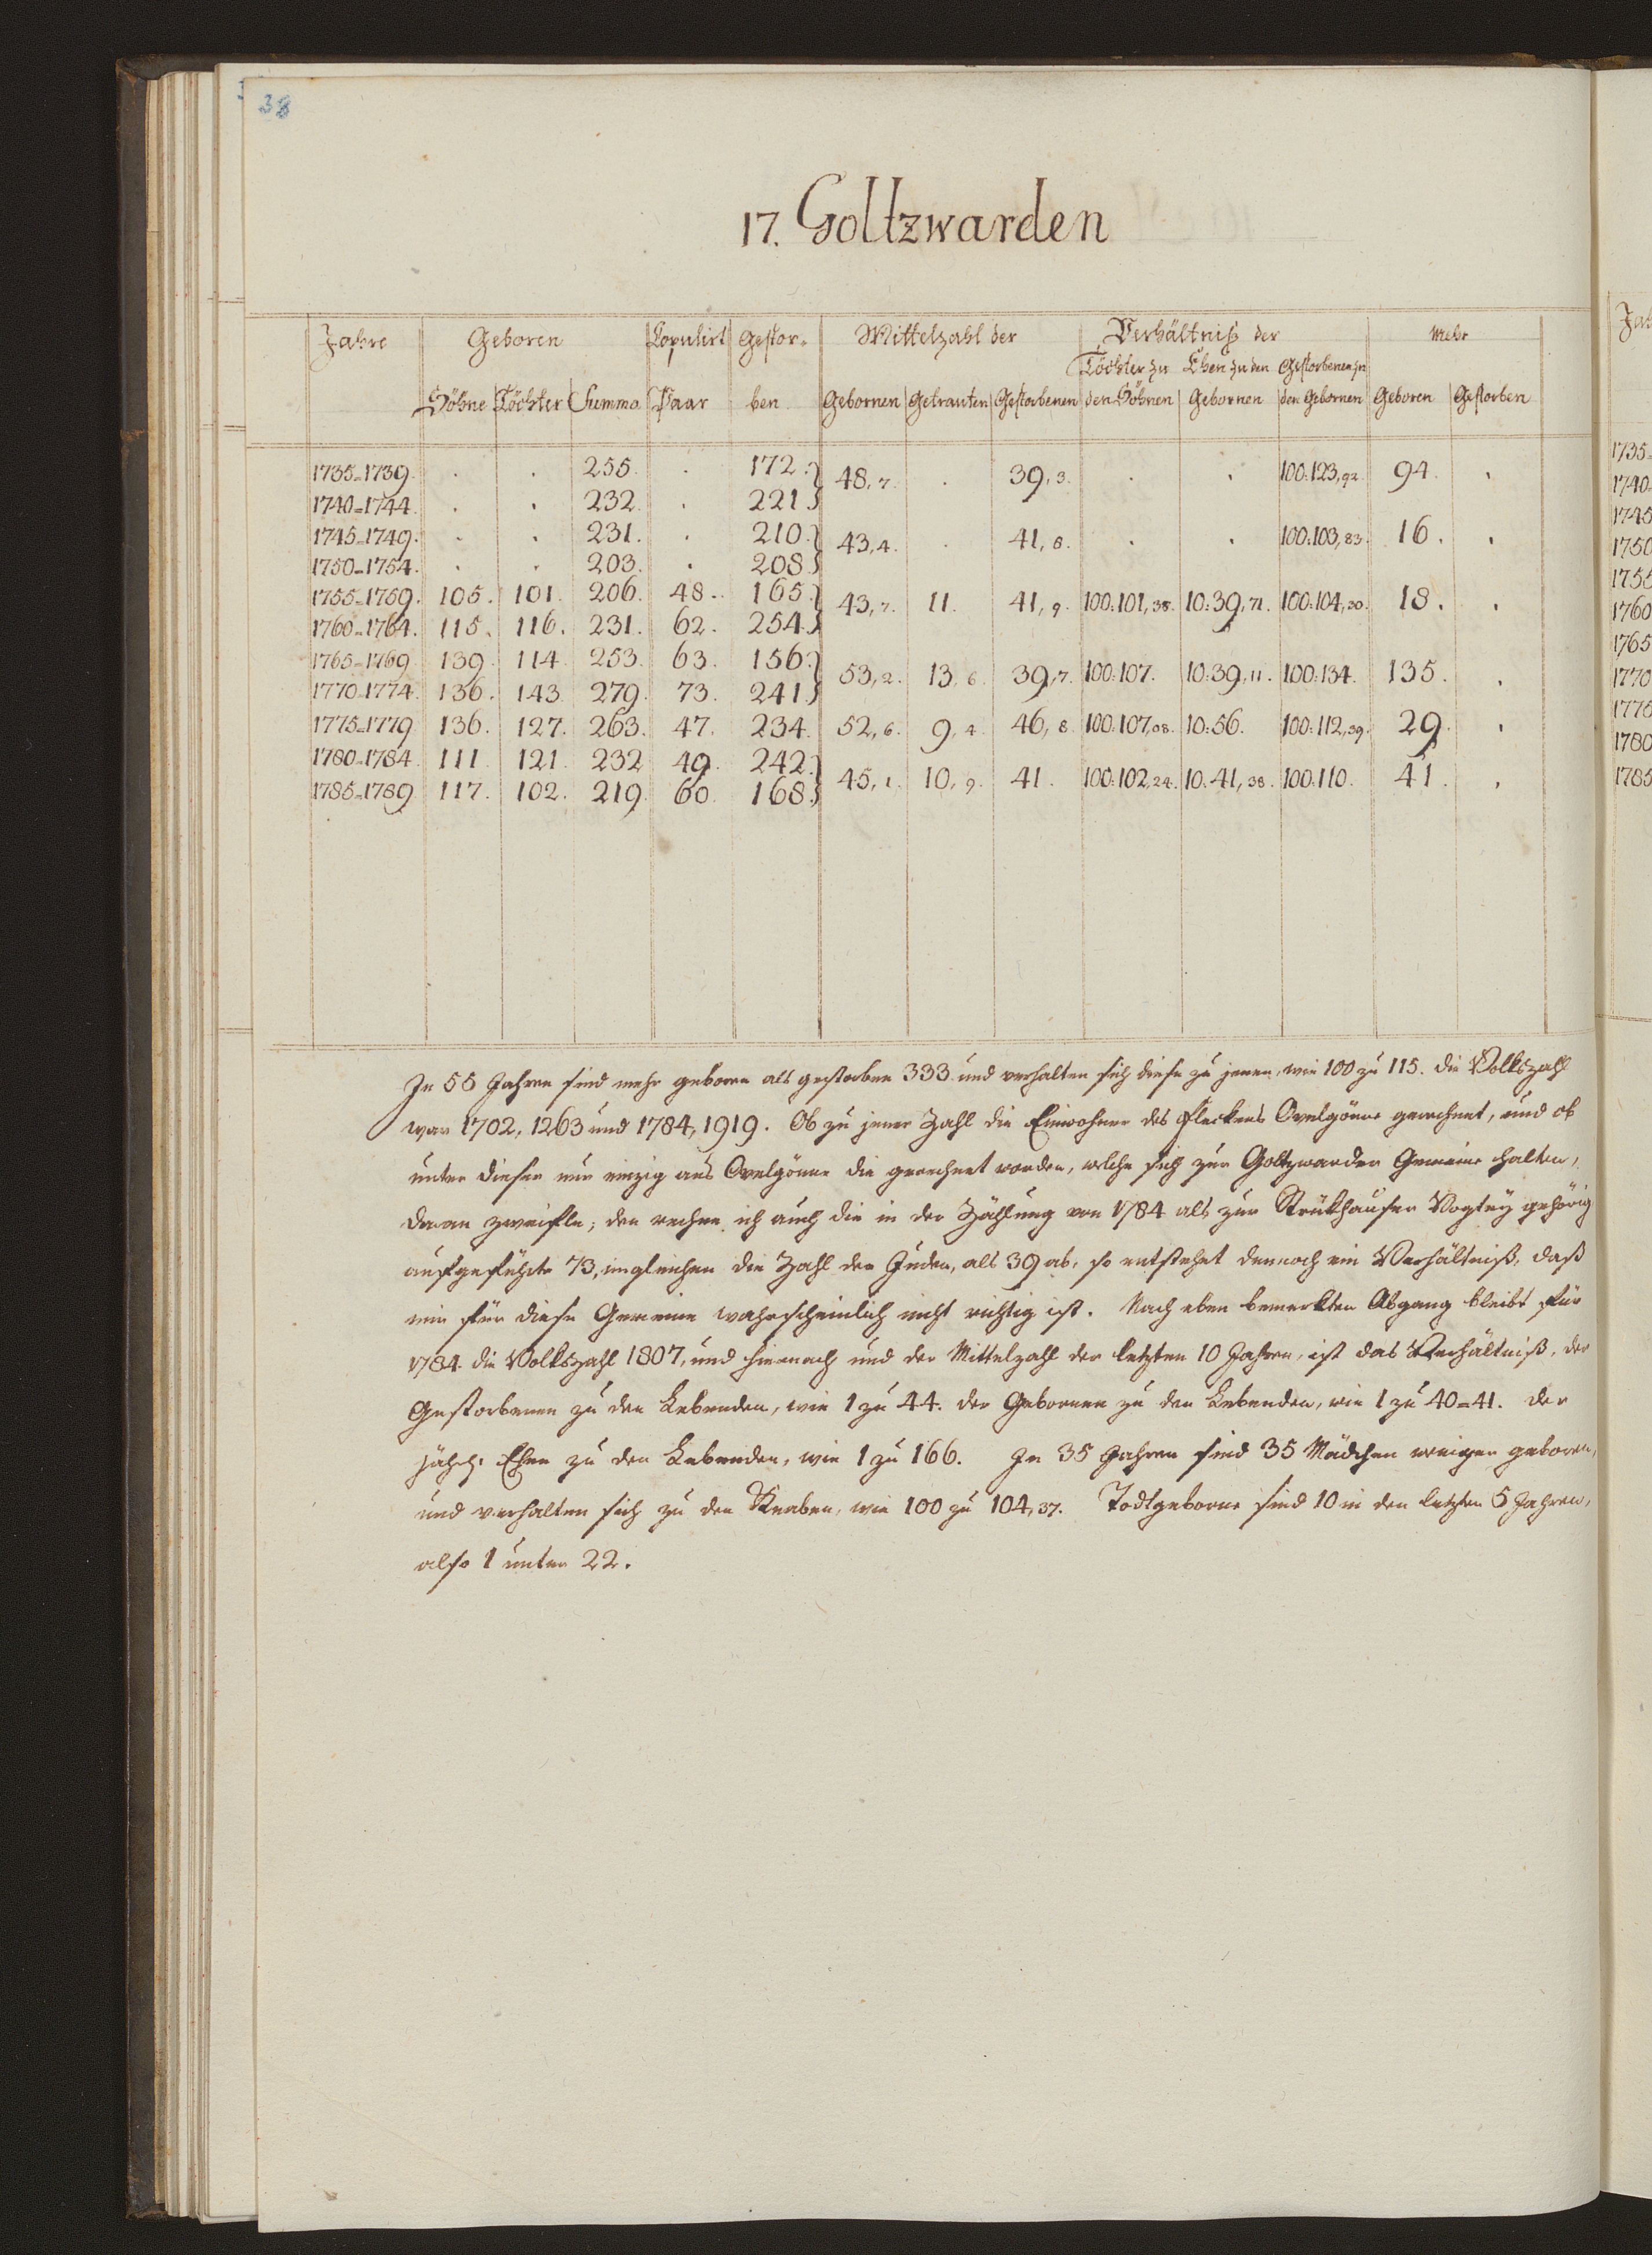 38
17. Goltzwarden
Jahre Geboren Copulirt Gestor= Mittelzahl der Verhältniß der Mehr
Töchter zu Ehen zu den Gestorbenen zu
Söhne Töchter Summa Paar ben Gebornen Getrauten Gestorbenen den Söhnen Gebornen den Gebornen Geboren Gestorben
1735=1739. . . 255. . 172. 48,7. . 39,3. . . 100:123,92. 94. .
1740=1744. . . 232. . 221.
1745=1749. . . 231. . 210. 43,4. . 41,8. . . 100:103,83. 16. .
1750=1754. . . 203. . 208.
1755=1759. 105. 101. 206. 48. 165. 43,7. 11. 41,9. 100:101,38. 10:39,71. 100:104,30. 18. .
1760=1764. 115. 116. 231. 62. 254.
1765=1769 139. 114. 253. 63. 156. 53,2. 13,6. 39,7. 100:107. 10:39,11. 100:134. 135. .
1770=1774. 136. 143. 279. 73. 241.
1775=1779 136. 127. 263. 47. 234. 52,6. 9,4. 46,8. 100:107,08. 10:56. 100:112,39. 29. .
1780=1784. 111. 121. 232 49. 242. 45,1. 10,9. 41. 100:102,24. 10:41,38. 100:110. 41. .
1785=1789. 117. 102. 219. 60. 168.
In 55 Jahren sind mehr geboren als gestorben 333. und verhalten sich diese zu jenen, wie 100 zu 115. die Volkszahl
war 1702, 1263 und 1784, 1919. Ob zu jener Zahl die Einwohner des Fleckens Ovelgönne gerechnet, und ob
unter dieser nur einzig aus Ovelgönne die gerechnet worden, welche sich zur Goltzwarder Gemeine halten,
daran zweifle; den rechne ich auch die in der Zählung von 1784 als zur Strükhauser Vogtey gehörig
aufgeführte 73, imgleichen die Zahl der Juden, als 39 ab, so entstehet dennoch ein Verhältniß, daß
mir für diese Gemeine wahrscheinlich nicht richtig ist. Nach eben bemerkten Abgang bleibt für
1784 die Volkszahl 1807, und hiernach und der Mittelzahl der letzten 10 Jahren, ist das Verhältniß, der
Gestorbenen zu den Lebenden, wie 1 zu 44. der Gebornen zu den Lebenden, wie 1 zu 40=41. der
jährl. Ehen zu den Lebenden, wie 1 zu 166. In 35 Jahren sind 35 Mädchen weniger geboren,
und verhalten sich zu den Knaben, wie 100 zu 104,37. Todtgeborne sind 10 in den letzten 5 Jahren,
also 1 unter 22.
Jah
1735=
1740=
1745
1750
1755
1760
1765
1770
1775
1780
1785